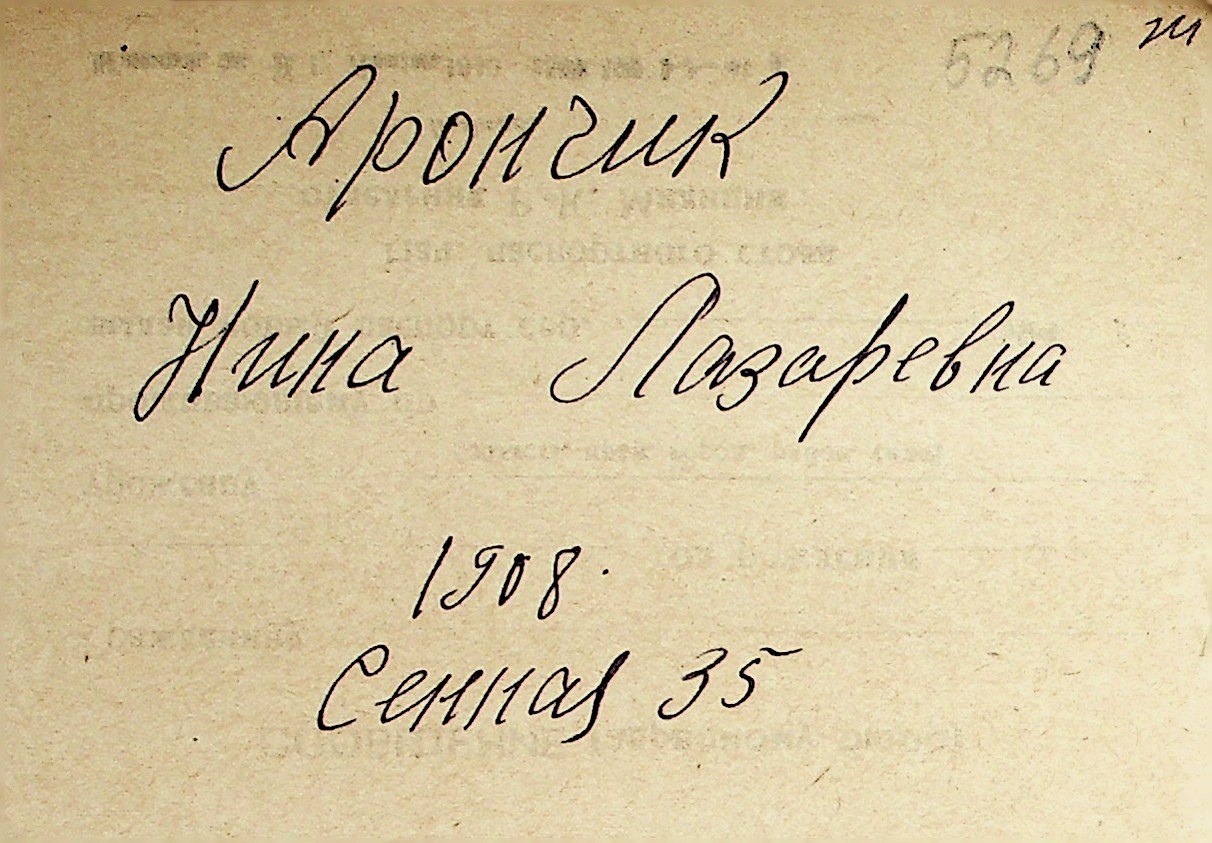 5269
Арончик
Нина Лазаревна
1908.
Сенная 35